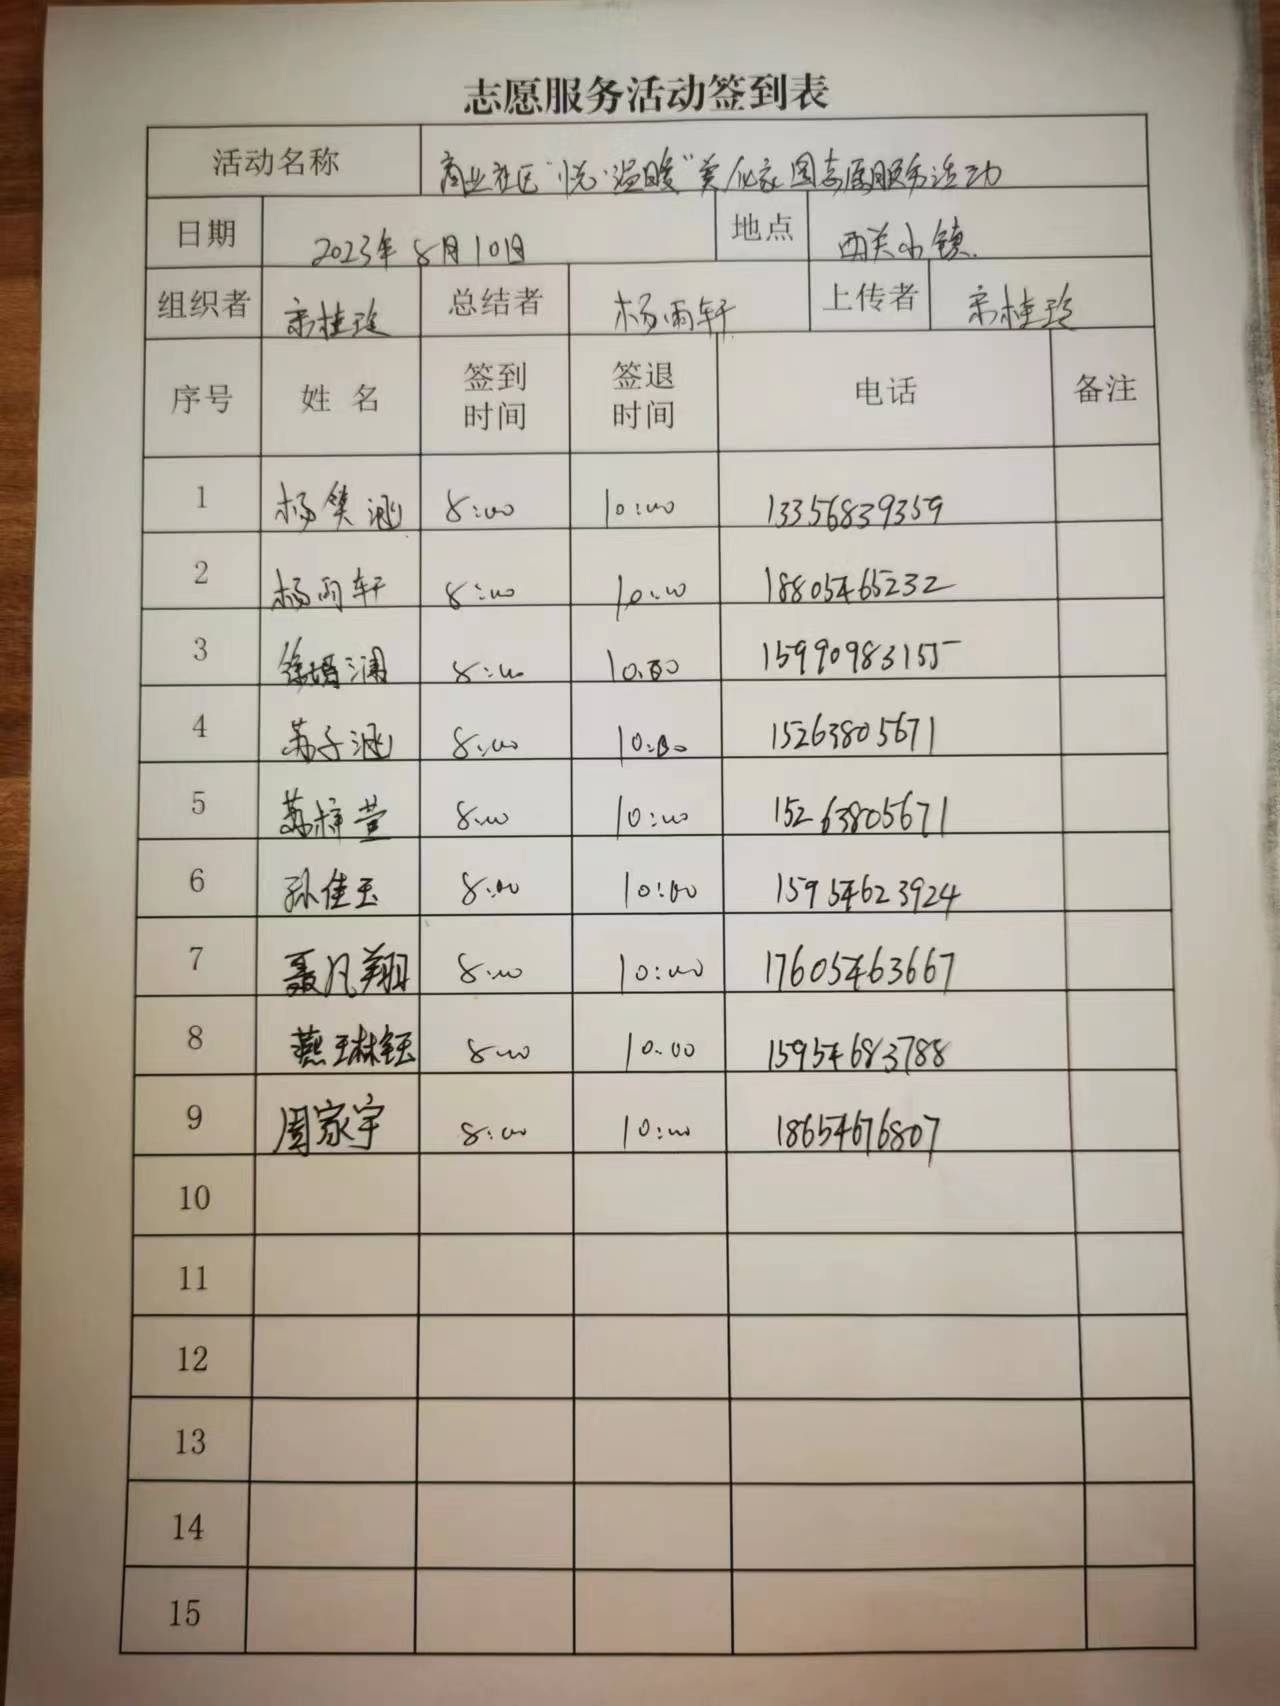 志愿服务活动签到表
活动名称 商业社区“悦·温暖”美化家园志愿服务活动
日期 2023年8月10日 地点 西关小镇.
组织者 宋桂玲 总结者 杨雨轩 上传者 宋桂玲
序号 姓 名 签到时间 签退时间 电话 备注
1 杨笑涵 8:00 10:00 13356839359
2 杨雨轩 8:00 10:00 18805465232
3 8:00 10:00 15990983155
4 苏子涵 8:00 10:00 15263805671
5 苏梓萱 8:00 10:00 15263805671
6 孙佳玉 8:00 10:00 15954623924
7 聂凡翔 8:00 10:00 17605463667
8 燕王林钰 8:00 10:00 15954683788
9 周家宇 8:00 10:00 18654676807
10
11
12
13
14
15